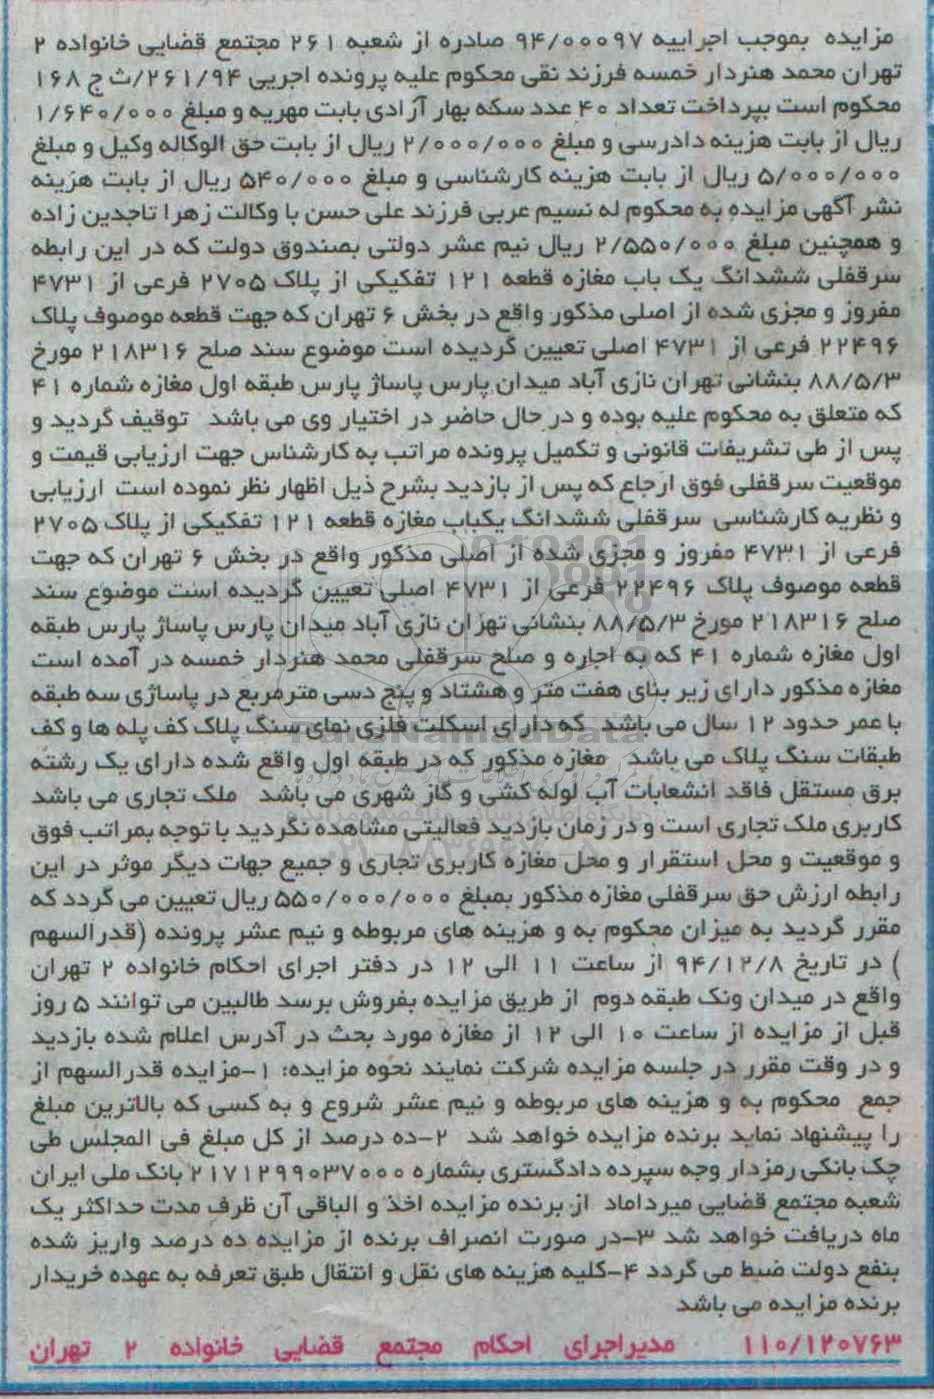 مزایده بموجب اجراییه ۹۴/۰۰۰۹۷ صادره از شعبه ۲۶۱ مجتمع قضایی خانواده ۲
تهران محمد هنردار خمسه فرزند نقی محکوم علیه پرونده اجریی ۲۶۱/۹۴/ث ج ۱۶۸
محکوم است بپرداخت تعداد ۴۰ عدد سکه بهار آزادی بابت مهریه و مبلغ ۱/۶۴۰/۰۰۰
ریال از بابت هزینه دادرسی و مبلغ ۲/۰۰۰/۰۰۰ ریال از بابت حق الوکاله وکیل و مبلغ
۵/۰۰۰/۰۰۰ ریال از بابت هزینه کارشناسی و مبلغ ۵۴۰/۰۰۰ ریال از بابت هزینه
نشر آگهی مزایده به محکوم له نسیم عربی فرزند علی حسن با وکالت زهرا تاجدین زاده
و همچنین مبلغ ۲/۵۵۰/۰۰۰ ریال نیم عشر دولتی بصندوق دولت که در این رابطه
سرقفلی ششدانگ یک باب مغازه قطعه ۱۲۱ تفکیکی از پلاک ۲۷۰۵ فرعی از ۴۷۳۱
مفروز و مجزی شده از اصلی مذکور واقع در بخش ۶ تهران که جهت قطعه موصوف پلاک
۲۲۴۹۶ فرعی از ۴۷۳۱ اصلی تعیین گردیده است موضوع سند صلح ۲۱۸۳۱۶ مورخ
۸۸/۵/۳ بنشانی تهران نازی آباد میدان پارس پاساژ پارس طبقه اول مغازه شماره ۴۱
که متعلق به محکوم علیه بوده و در حال حاضر در اختیار وی می باشد توقیف گردید و
پس از طی تشریفات قانونی و تکمیل پرونده مراتب به کارشناس جهت ارزیابی قیمت و
موقعیت سرقفلی فوق ارجاع که پس از بازدید بشرح ذیل اظهار نظر نموده است ارزیابی
و نظریه کارشناسی سرقفلی ششدانگ یکباب مغازه قطعه ۱۲۱ تفکیکی از پلاک ۲۷۰۵
فرعی از ۴۷۳۱ مفروز و مجزی شده از اصلی مذکور واقع در بخش ۶ تهران که جهت
قطعه موصوف پلاک ۲۲۴۹۶ فرعی از ۴۷۳۱ اصلی تعیین گردیده است موضوع سند
صلح ۲۱۸۳۱۶ مورخ ۸۸/۵/۳ بنشانی تهران نازی آباد میدان پارس پاساژ پارس طبقه
اول مغازه شماره ۴۱ که به اجاره و صلح سرقفلی محمد هنردار خمسه در آمده است
مغازه مذکور دارای زیر بنای هفت متر و هشتاد و پنج دسی مترمربع در پاساژی سه طبقه
با عمر حدود ۱۲ سال می باشد که دارای اسکلت فلزی نمای سنگ پلاک کف پله ها و کف
طبقات سنگ پلاک می باشد مغازه مذکور که در طبقه اول واقع شده دارای یک رشته
برق مستقل فاقد انشعابات آب لوله کشی و گاز شهری می باشد ملک تجاری می باشد
کاربری ملک تجاری است و در زمان بازدید فعالیتی مشاهده نگردید با توجه بمراتب فوق
و موقعیت و محل استقرار و محل مغازه کاربری تجاری و جمیع جهات دیگر موثر در این
رابطه ارزش حق سرقفلی مغازه مذکور بمبلغ ۵۵۰/۰۰۰/۰۰۰ ریال تعیین می گردد که
مقرر گردید به میزان محکوم به و هزینه های مربوطه و نیم عشر پرونده (قدرالسهم
) در تاریخ ۹۴/۱۲/۸ از ساعت ۱۱ الی ۱۲ در دفتر اجرای احکام خانواده ۲ تهران
واقع در میدان ونک طبقه دوم از طریق مزایده بفروش برسد طالبین می توانند ۵ روز
قبل از مزایده از ساعت ۱۰ الی ۱۲ از مغازه مورد بحث در آدرس اعلام شده بازدید
و در وقت مقرر در جلسه مزایده شرکت نمایند نحوه مزایده: ۱-مزایده قدرالسهم از
جمع محکوم به و هزینه های مربوطه و نیم عشر شروع و به کسی که بالاترین مبلغ
را پیشنهاد نماید برنده مزایده خواهد شد ۲-ده درصد از کل مبلغ فی المجلس طی
چک بانکی رمزدار وجه سپرده دادگستری بشماره ۲۱۷۱۲۹۹۰۳۷۰۰۰ بانک ملی ایران
شعبه مجتمع قضایی میرداماد از برنده مزایده اخذ و الباقی آن ظرف مدت حداکثر یک
ماه دریافت خواهد شد ۳-در صورت انصراف برنده از مزایده ده درصد واریز شده
بنفع دولت ضبط می گردد ۴-کلیه هزینه های نقل و انتقال طبق تعرفه به عهده خریدار
برنده مزایده می باشد
۱۱۰/۱۲۰۷۶۳ مدیراجرای احکام مجتمع قضایی خانواده ۲ تهران